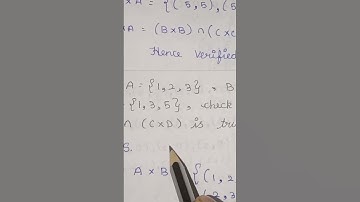 ×A = {(5,5), (5
×A = (B×B) ∩ (C×C
Hence verified
A = {1,2,3}, B
{1,3,5}, check
∩ (C×D) is tru
S.
A × B {(1,2